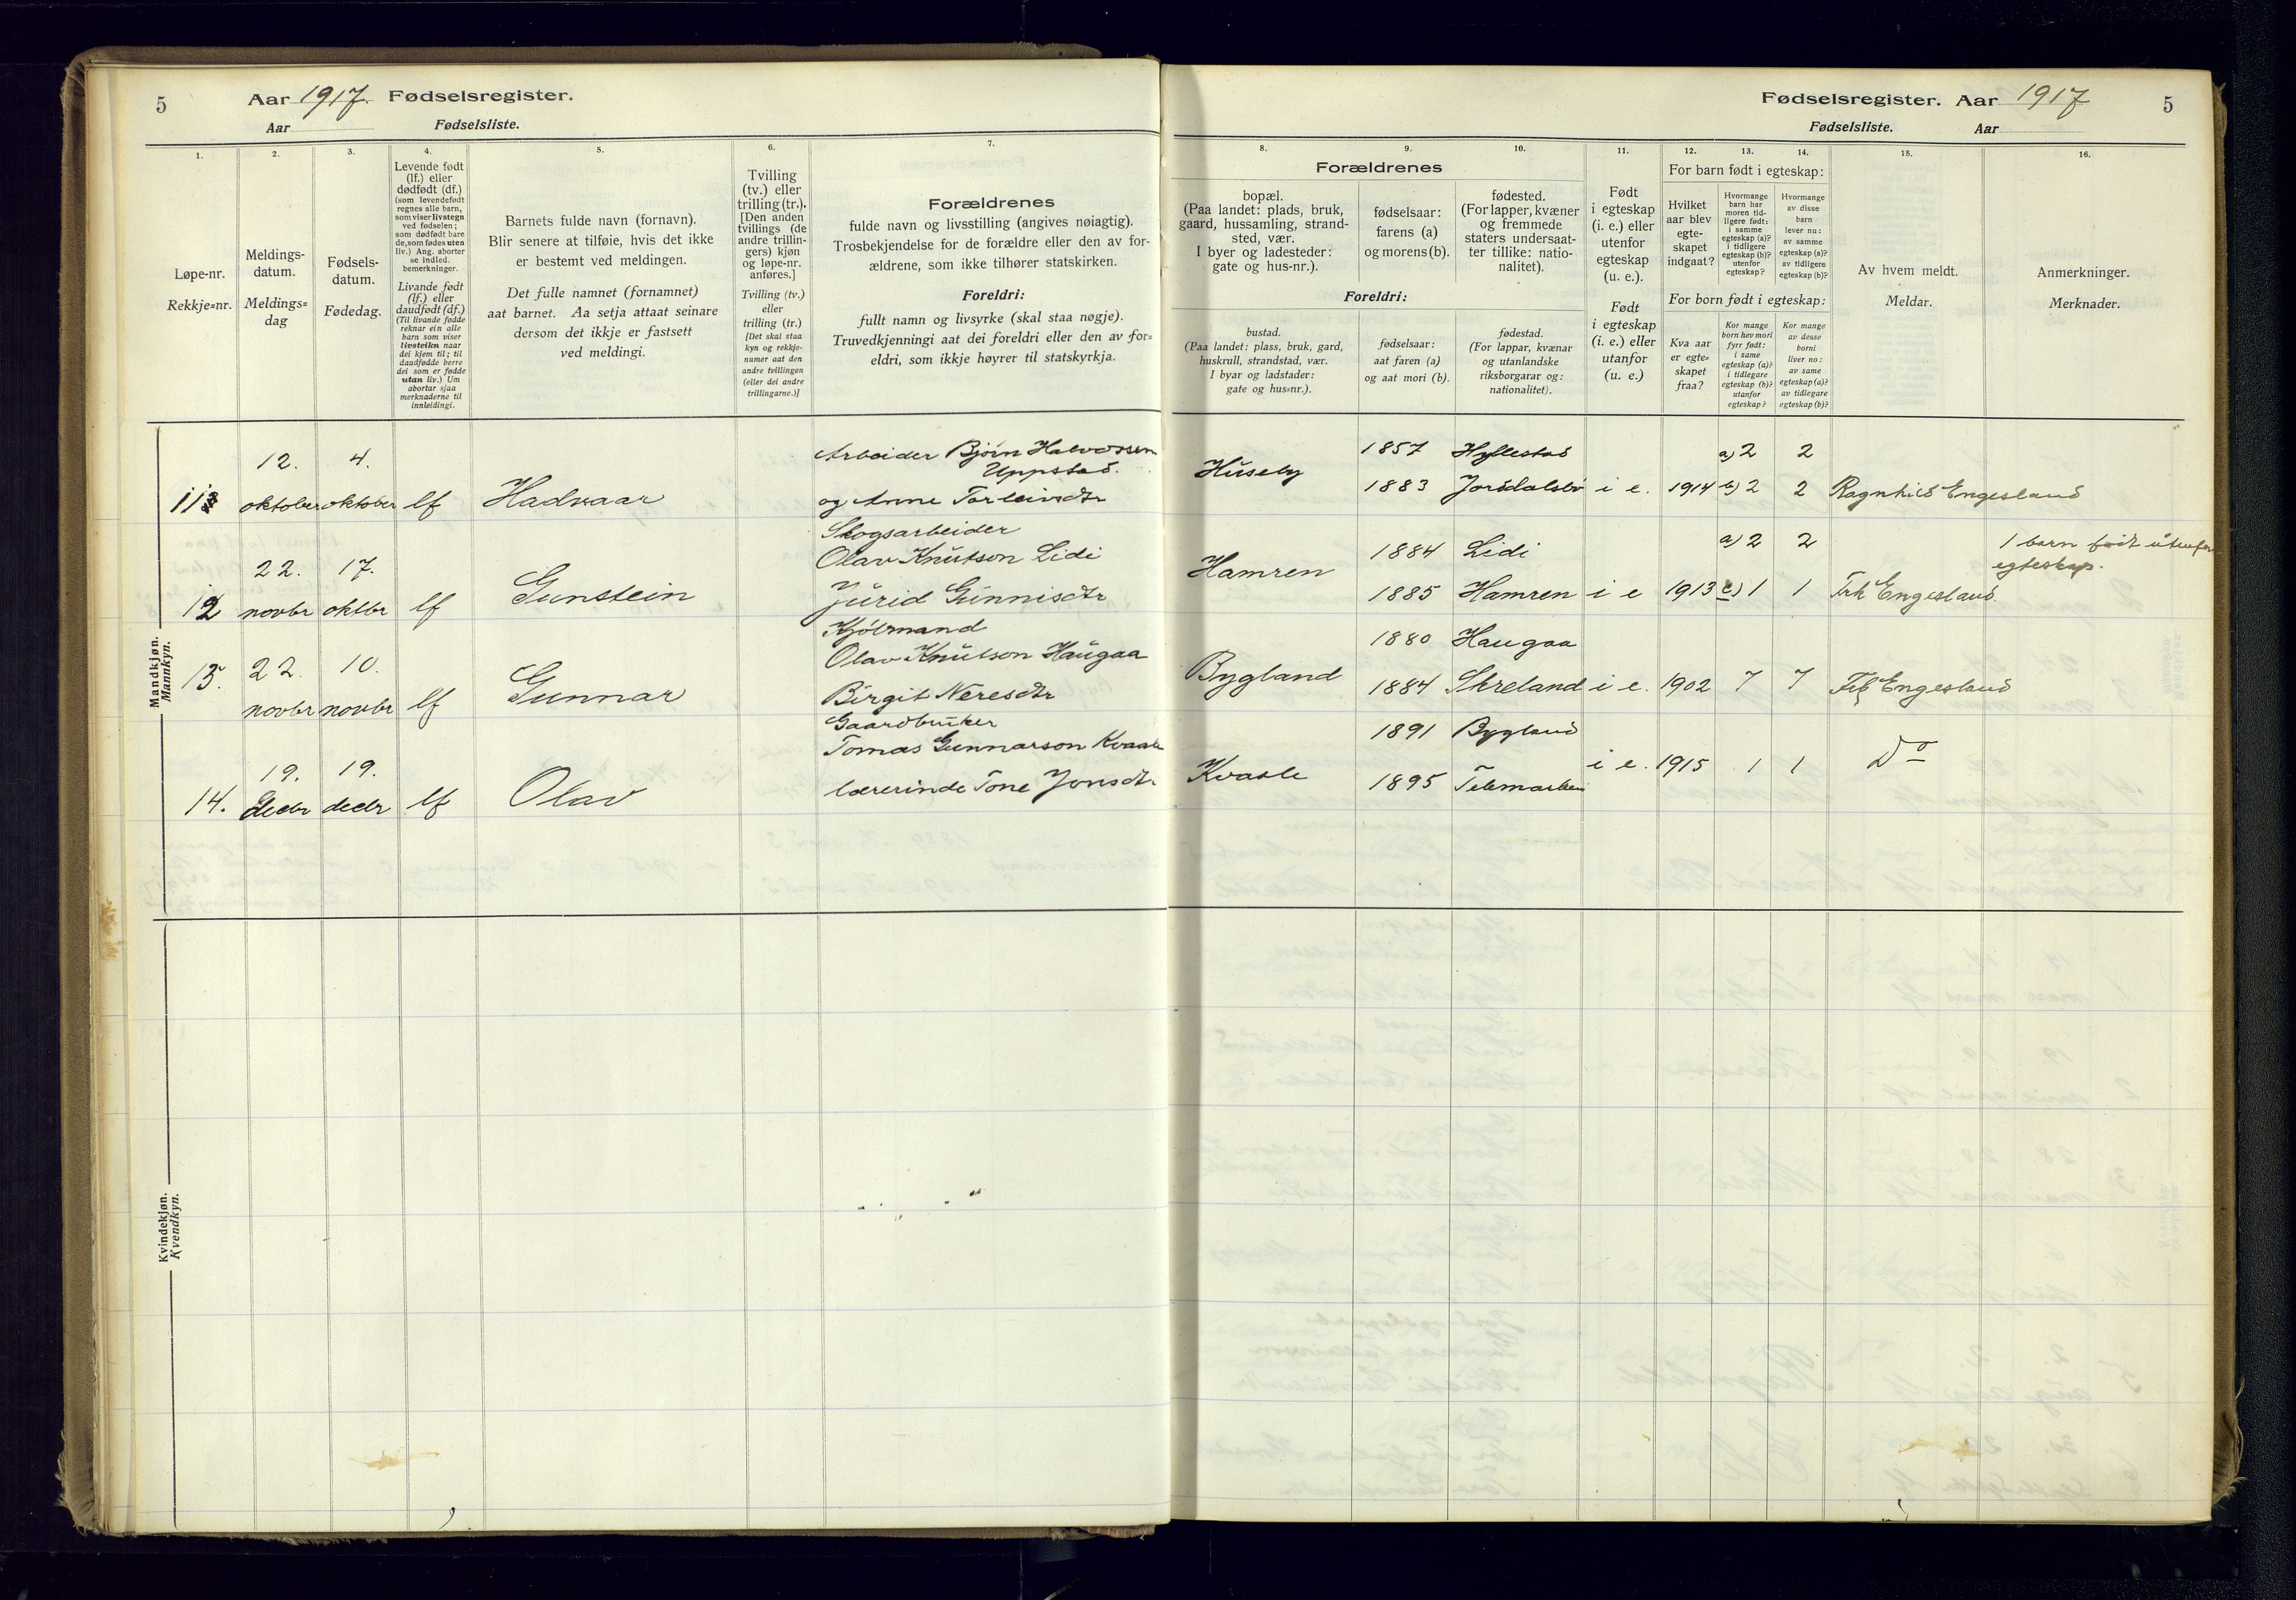 5
Aar 1917. Fødselsregister.
Aar Fødselsliste.
Fødselsregister. Aar 1917
5
Fødselsliste. Aar
1.
Løpe-nr.
Rekkje=nr.
2.
Meldings-
datum.
Meldings=
dag
3.
Fødsels-
datum.
Fødedag.
4.
Levende født
(lf.) eller
dødfødt (df.)
(som levendefødt
regnes alle barn,
som viser livstegn
ved fødselen;
som dødfødt bare
de, som fødes uten
liv.) Ang. aborter
se indled.
bemerkninger.
Livande født
(lf.) eller
daudfødt (df.)
(Til livande fødde
reknar ein alle
barn som viser
livsteikn naar
dei kjem til; til
daudfødde berre
dei som er fødde
utan liv.) Um
abortar sjaa
merknaderne til
innleidingi.
5.
Barnets fulde navn (fornavn).
Blir senere at tilføie, hvis det ikke
er bestemt ved meldingen.
Det fulle namnet (fornamnet)
aat barnet. Aa setja attaat seinare
dersom det ikkje er fastsett
ved meldingi.
6.
Tvilling
(tv.) eller
trilling (tr.).
[Den anden
tvillings (de
andre trillin-
gers) kjøn
og løpe-nr.
anføres.]
Tvilling (tv.)
eller
trilling (tr.)
[Det skal staa
kyn og rekkje-
numer aat den
andre tvillingen
(eller dei andre
trillingarne.)]
7.
Forældrenes
fulde navn og livsstilling (angives nøiagtig).
Trosbekjendelse for de forældre eller den av for-
ældrene, som ikke tilhører statskirken.
Foreldri:
fullt namn og livsyrke (skal staa nøgje).
Truvedkjenningi aat dei foreldri eller den av for=
eldri, som ikkje høyrer til statskyrkja.
8.
Forældrenes
bopæl.
(Paa landet: plads, bruk,
gaard, hussamling, strand-
sted, vær.
I byer og ladesteder:
gate og hus-nr.).
Foreldri:
bustad.
(Paa landet: plass, bruk, gard,
huskrull, strandstad, vær.
I byar og ladstader:
gate og hus=nr.).
9.
fødselsaar:
farens (a)
og morens (b).
fødselsaar:
aat faren (a)
og aat mori (b).
10.
fødested.
(For lapper, kvæner
og fremmede
staters undersaat-
ter tillike: natio-
nalitet).
fødestad.
(For lappar, kvænar
og utanlandske
riksborgarar og:
nationalitet).
11.
Født
i egteskap
(i. e.) eller
utenfor
egteskap
(u. e.).
Født
i egteskap
(i. e.) eller
utanfor
(u. e.)
12. 13. 14.
For barn født i egteskap:
Hvilket
aar blev
egte-
skapet
indgaat?
Hvormange
barn har
moren tid-
ligere født:
i samme
egteskap (a)?
i tidligere
egteskap (b)?
utenfor
egteskap?
Hvormange
av disse
barn
lever nu:
av samme
egteskap (a)?
av tidligere
egteskap (b)?
For born født i egteskap:
Kva aar
er egte=
skapet
fraa?
Kor mange
born hev mori
fyrr født:
i same
egteskap (a)?
i tidlegare
egteskap (b)?
utanfor
egteskap?
Kor mange
av desse
borni
liver no:
av same
egteskap (a)?
av tidlegare
egteskap (b)?
15.
Av hvem meldt.
Meldar.
16.
Anmerkninger.
Merknader.
Mandkjøn.
Mannkyn.
12. 4. Arbeider Bjørn Halvorssen
Uppstad.
Huseby 1857 Hyllestad a) 2 2
11 oktober oktober lf Hadvaar og Anne Tarleivsdtr
1883 Jordalsbø i e. 1914 b) 2 2 Ragnhild Engesland
Skogsarbeider
22. 17. Olav Knutson Lidi
Hamren 1884 Lidi a) 2 2 1 barn født utenfor
egteskap.
12 novbr oktbr lf Gunstein Jürid Günnisdtr
1885 Hamren i e 1913 1 1 Frk Engesland.
22. 10. Olav Knutson Haugaa
1880 Haugaa
13. novbr novbr lf Gunnar Birgit Neresdtr
Bygland 1884 Skreland i e. 1902 7 7 Frk Engesland
Gaardbruker
19. 19. Tomas Gunnarson Kvaale
1891 Bygland
14. decbr decbr lf Olav lærerinde Tone Jonsdtr
Kvaale 1895 Telemarken i e. 1915 1 1 Do
Kvindekjøn.
Kvendkyn.